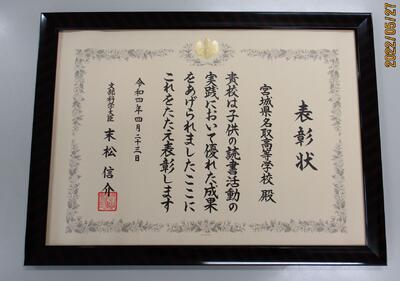 表彰状
宮城県名取高等学校 殿
貴校は子供の読書活動の
実践において優れた成果
をあげられましたここに
これをたたえ表彰します
令和四年四月二十三日
文部科学大臣 末松信介
2022/05/27